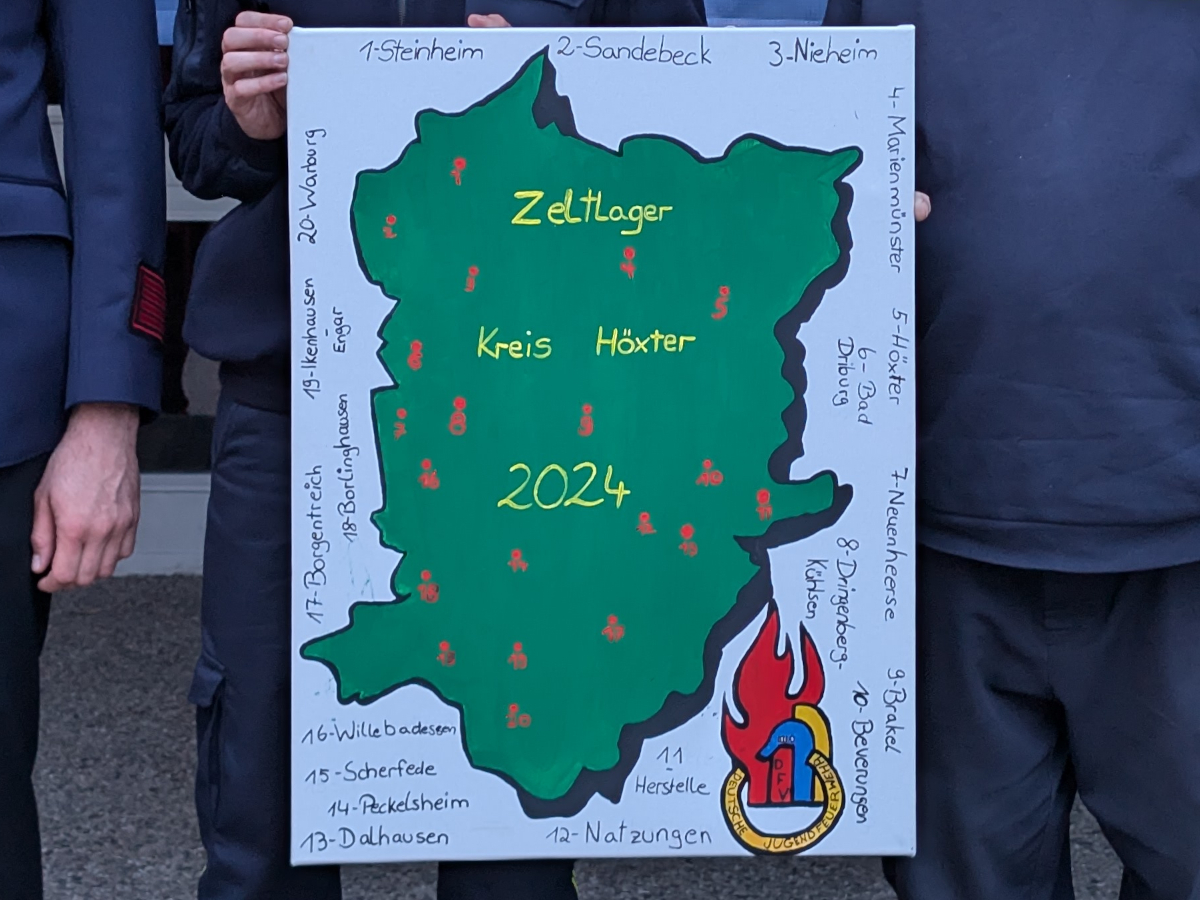 1-Steinheim
2-Sandebeck
3-Nieheim
4-Marienmünster
5-Höxter
6-Bad
Driburg
7-Neuenheerse
8-Dringenberg-
Kühlsen
9-Brakel
10-Beverungen
11
Herstelle
12-Natzungen
13-Dalhausen
14-Peckelsheim
15-Scherfede
16-Willebadessen
17-Borgentreich
18-Borlinghausen
19-Ikenhausen
Engar
20-Warburg
Zeltlager
Kreis Höxter
2024
DEUTSCHE JUGENDFEUERWEHR